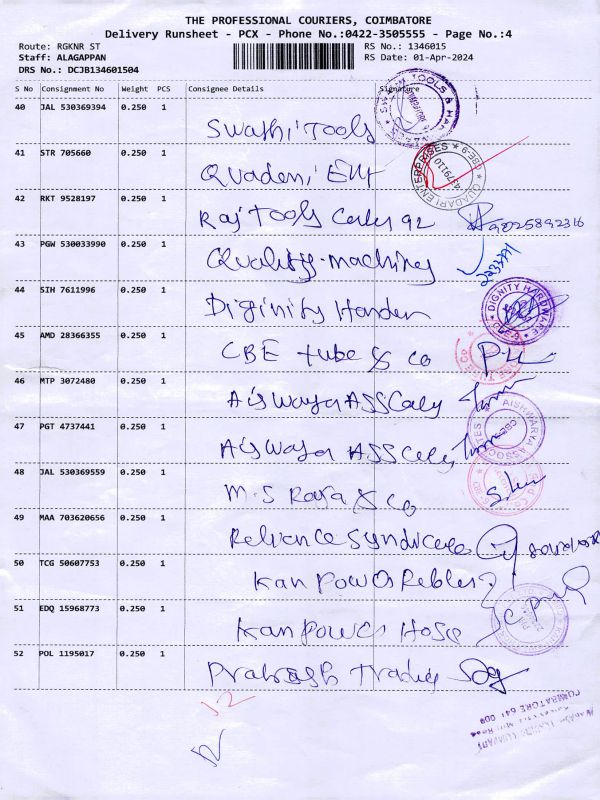 THE PROFESSIONAL COURIERS, COIMBATORE
Delivery Runsheet - PCX - Phone No.:0422-3505555 - Page No.:4
Route: RGKNR ST
RS No.: 1346015
Staff: ALAGAPPAN
RS Date: 01-Apr-2024
DRS No.: DCJB134601504
S No Consignment No Weight PCS Consignee Details Signature
40 JAL 530369394 0.250 1
Swathi Tools
41 STR 705660 0.250 1
QUADARI ENTERPRISES
CBE-9
4379110
42 RKT 9528197 0.250 1
Raj Tools
9025892316
43 PGW 530033990 0.250 1
Quality
44 SIH 7611996 0.250 1
Diginity
DIGNITY HARDWARE
CBE-9
45 AMD 28366355 0.250 1
CBE tube & Co
46 MTP 3072480 0.250 1
Aiswaya ASS
AISHWARYA ASSOCIATES
CBE
47 PGT 4737441 0.250 1
Aiswaya ASS
48 JAL 530369559 0.250 1
M.S Raya & Co
49 MAA 703620656 0.250 1
Reliance
50 TCG 50607753 0.250 1
Kan Power
51 EDQ 15968773 0.250 1
Kan Power
52 POL 1195017 0.250 1
12
COIMBATORE 641 009